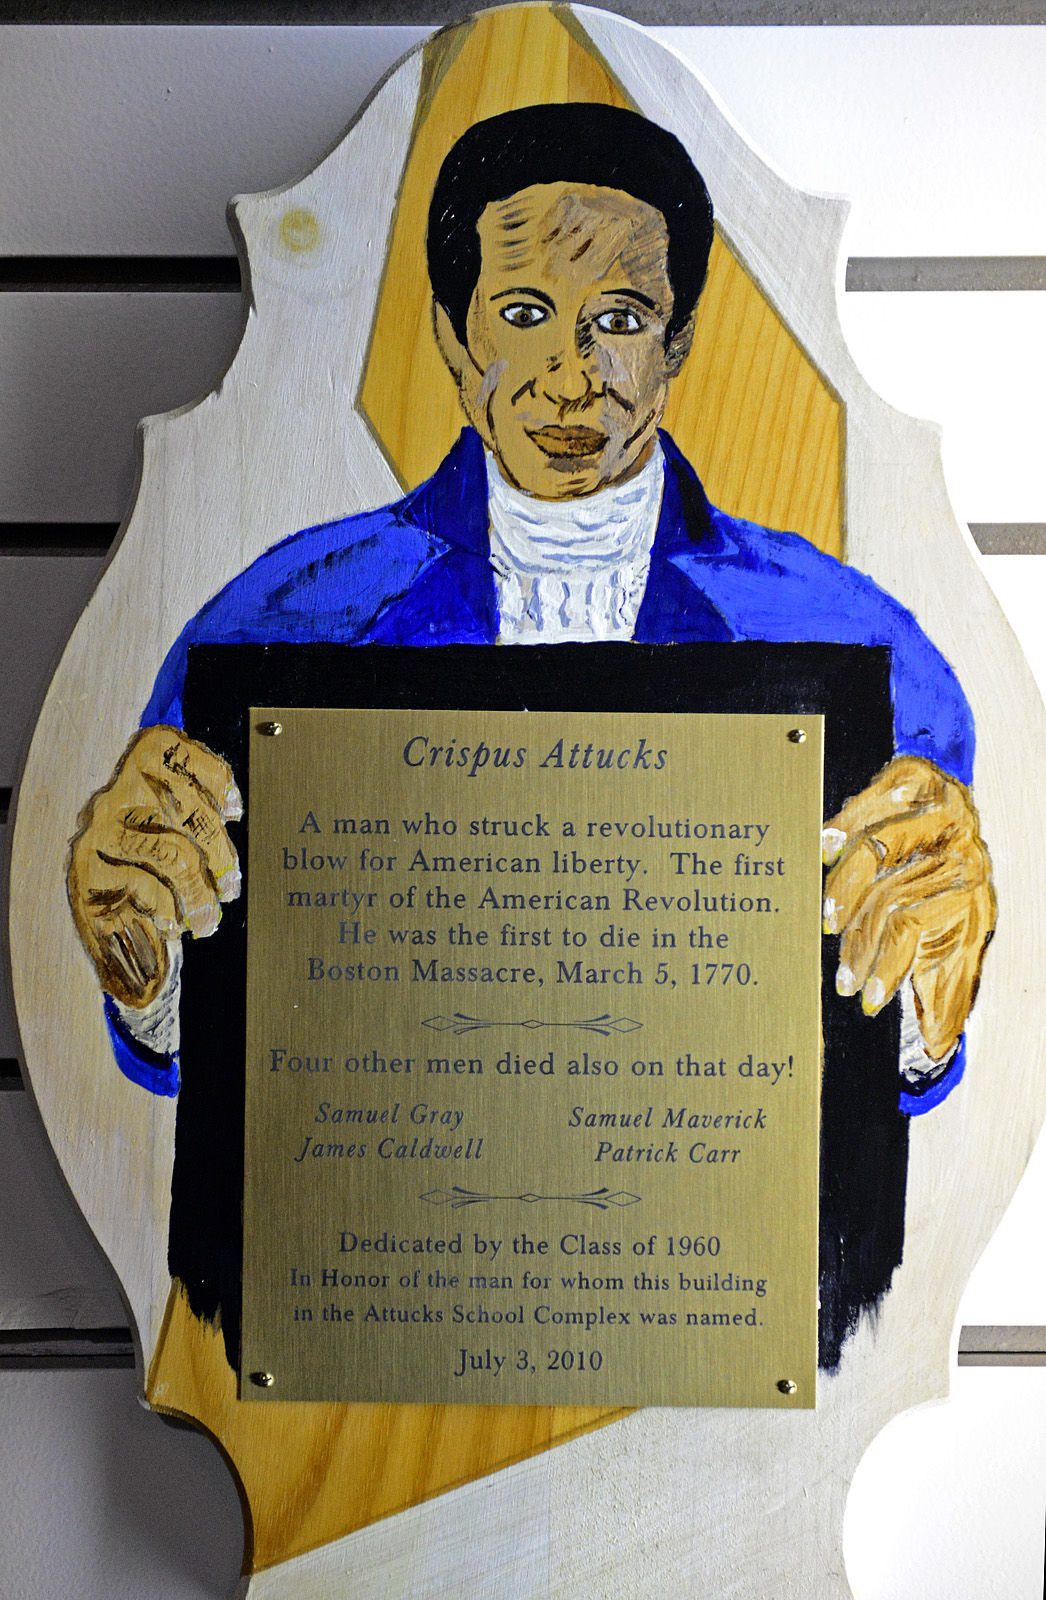 Crispus Attucks
A man who struck a revolutionary
blow for American liberty. The first
martyr of the American Revolution.
He was the first to die in the
Boston Massacre, March 5, 1770.
Four other men died also on that day!
Samuel Gray Samuel Maverick
James Caldwell Patrick Carr
Dedicated by the Class of 1960
In Honor of the man for whom this building
in the Attucks School Complex was named.
July 3, 2010